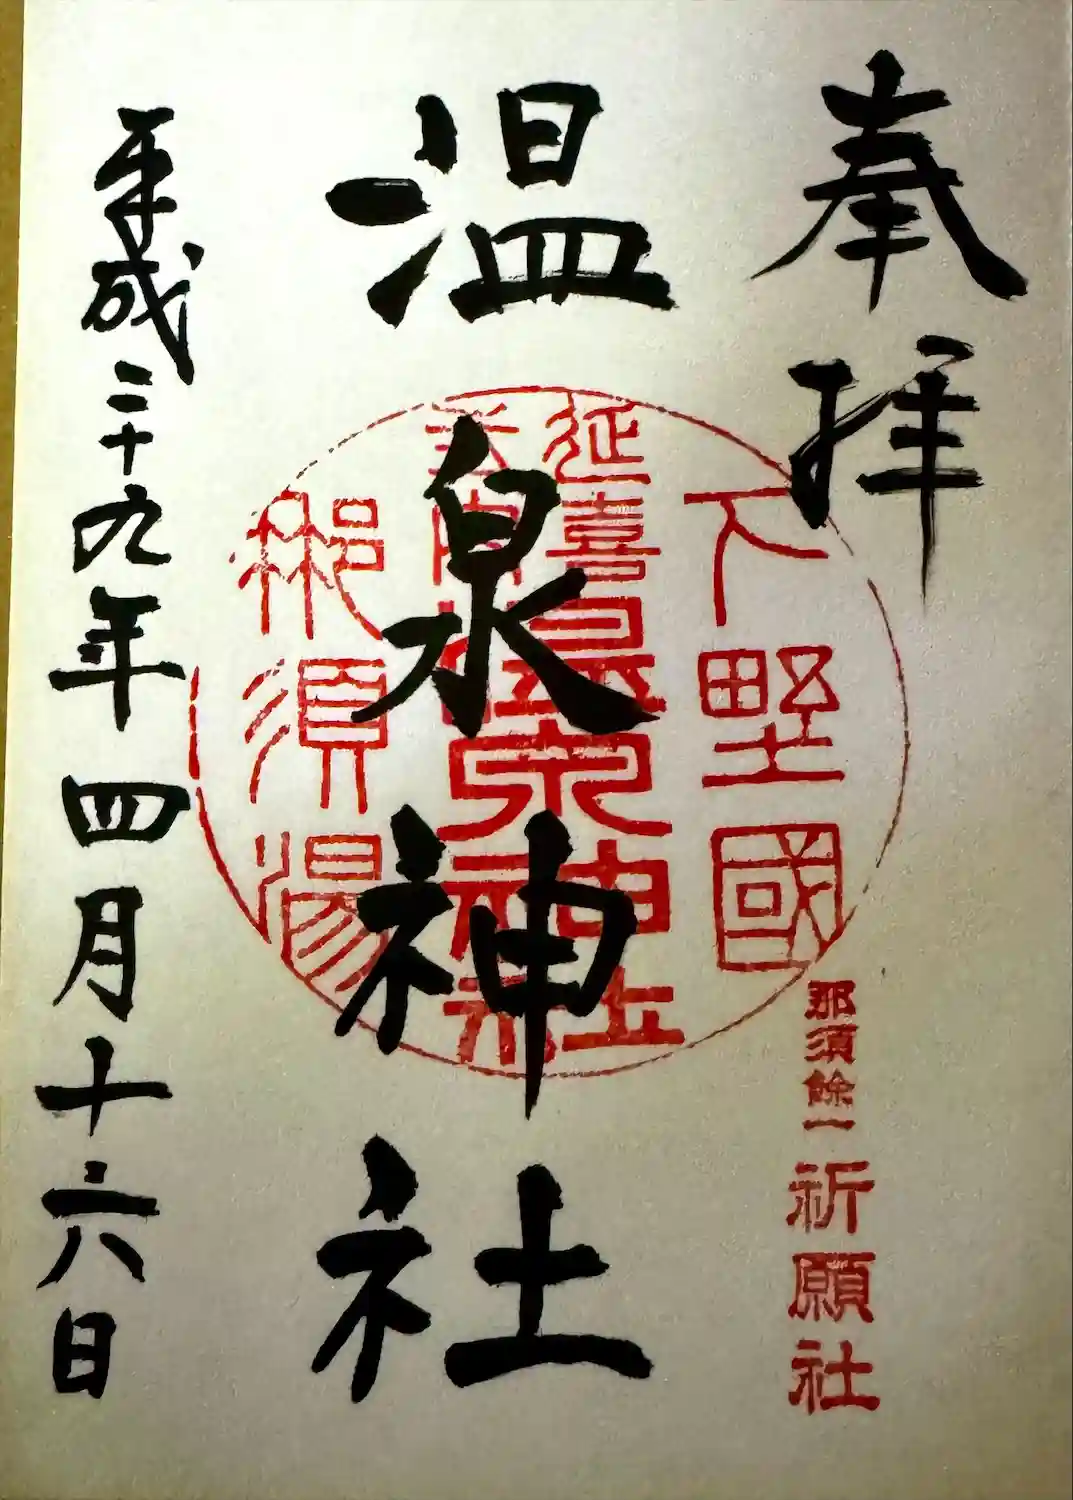 奉拝
下野國
那須餘一祈願社
温泉神社
延喜
那須湯
平成二十九年四月十六日